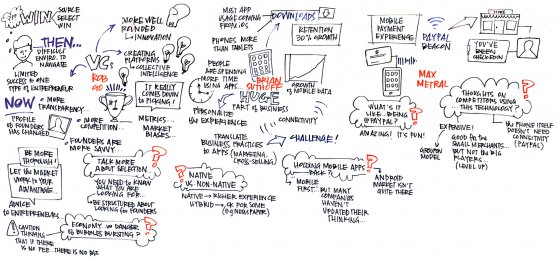 #WIN
SOURCE
SELECT
WIN
THEN...
DIFFICULT
ENVIRO. TO
NAVIGATE
LIMITED
SUCCESS TO ONE
TYPE OF ENTREPRENEUR
NOW
MORE TRANSPARENCY
PROFILE
OF FOUNDERS
HAS CHANGED
MORE
COMPETITION...
FOUNDERS ARE
MORE SAVVY
BE MORE
THOROUGH!
LET THE MARKET
WORK TO YOUR
ADVANTAGE...
ADVICE
TO ENTREPRENEURS
CAUTION
THINKING
THAT IF THERE
IS NO FEE.. THERE IS NO BIZ
VC.
ROB
GO
MORE WELL
ROUNDED
INNOVATION
CREATING
PLATFORMS
COLLECTIVE
INTELLIGENCE
#1
IT REALLY
COMES DOWN
TO PICKING!
METRICS...
MARKET
BIASES
TALK MORE
ABOUT SELECTION...
YOU NEED TO KNOW
WHAT YOU ARE
LOOKING FOR...
BE STRUCTURED ABOUT
LOOKING FOR FOUNDERS
ECONOMY... DANGER
OF BUBBLES BURSTING?
MOST APP
USAGE COMING
FROM iOS
PHONES MORE
THAN TABLETS
DOWNLOADS
RETENTION
30% GROWTH
PEOPLE
ARE SPENDING
MORE TIME
USING APPS
BRIAN
SUTHOFF
GROWTH
OF MOBILE DATA
HUGE
PART OF BUSINESS
PERSONALIZE
THE EXPERIENCES
CONNECTIVITY
TRANSLATE
BUSINESS PRACTICES
TO APPS (MARKETING,
CROSS-SELLING)
CHALLENGE!
NATIVE
VS. NON-NATIVE
NATIVE → RICHER EXPERIENCE
HYBRID → OK FOR SOME
(e.g. NEWSPAPER)
HOLDING MOBILE APPS
BACK?
MOBILE
FIRST... BUT MANY
COMPANIES
HAVEN'T
UPDATED THEIR
THINKING...
ANDROID
MARKET ISN'T
QUITE THERE
MOBILE
PAYMENT
EXPERIENCE
PAYPAL
BEACON
STORE
YOU'VE
BEEN
CHECKED IN
MAX
METRAL
WHAT'S IT
LIKE... BEING
@ PAYPAL?
AMAZING! IT'S FUN!
THOUGHTS ON
COMPETITORS USING
THIS TECHNOLOGY...?
THE PHONE ITSELF
DOESN'T NEED
CONNECTIVITY
(PAYPAL)
EXPENSIVE!
GOOD for the
SMALL MERCHANTS...
BUT NOT the BIG
PLAYERS...
(LEVEL UP)
GROUPON
MODEL